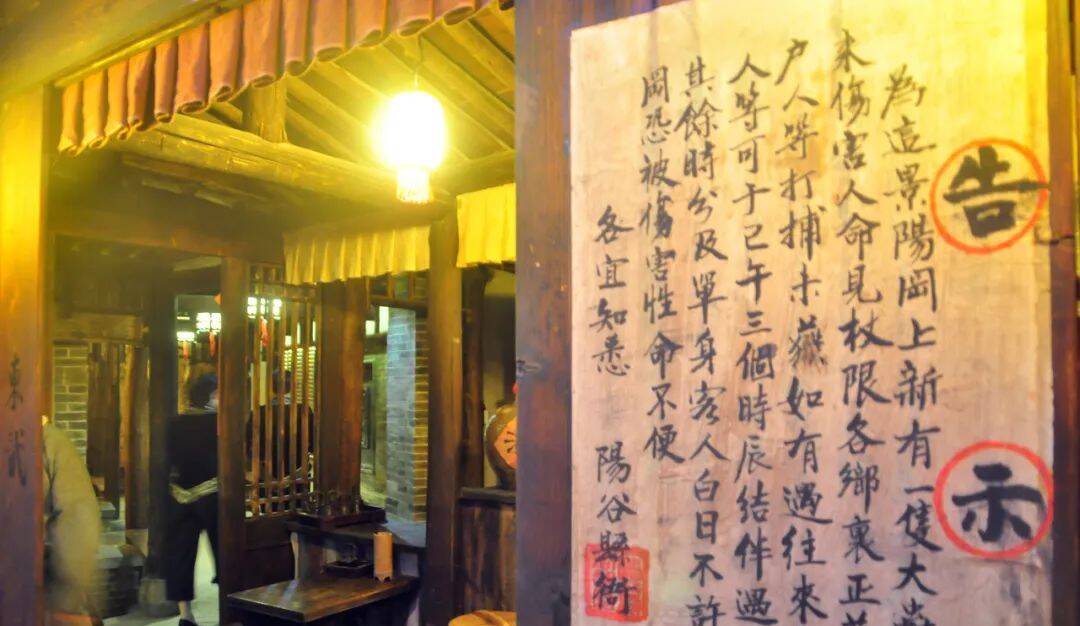 告示
為這景陽岡上新有一隻大
来傷害人命見杖限各鄉裏正
户人等打捕未獲如有遇往來
人等可于已午三個時辰結伴遇
其餘時分及單身客人白日不許
岡恐被傷害性命不便
各宜知悉 陽谷縣衙
東武